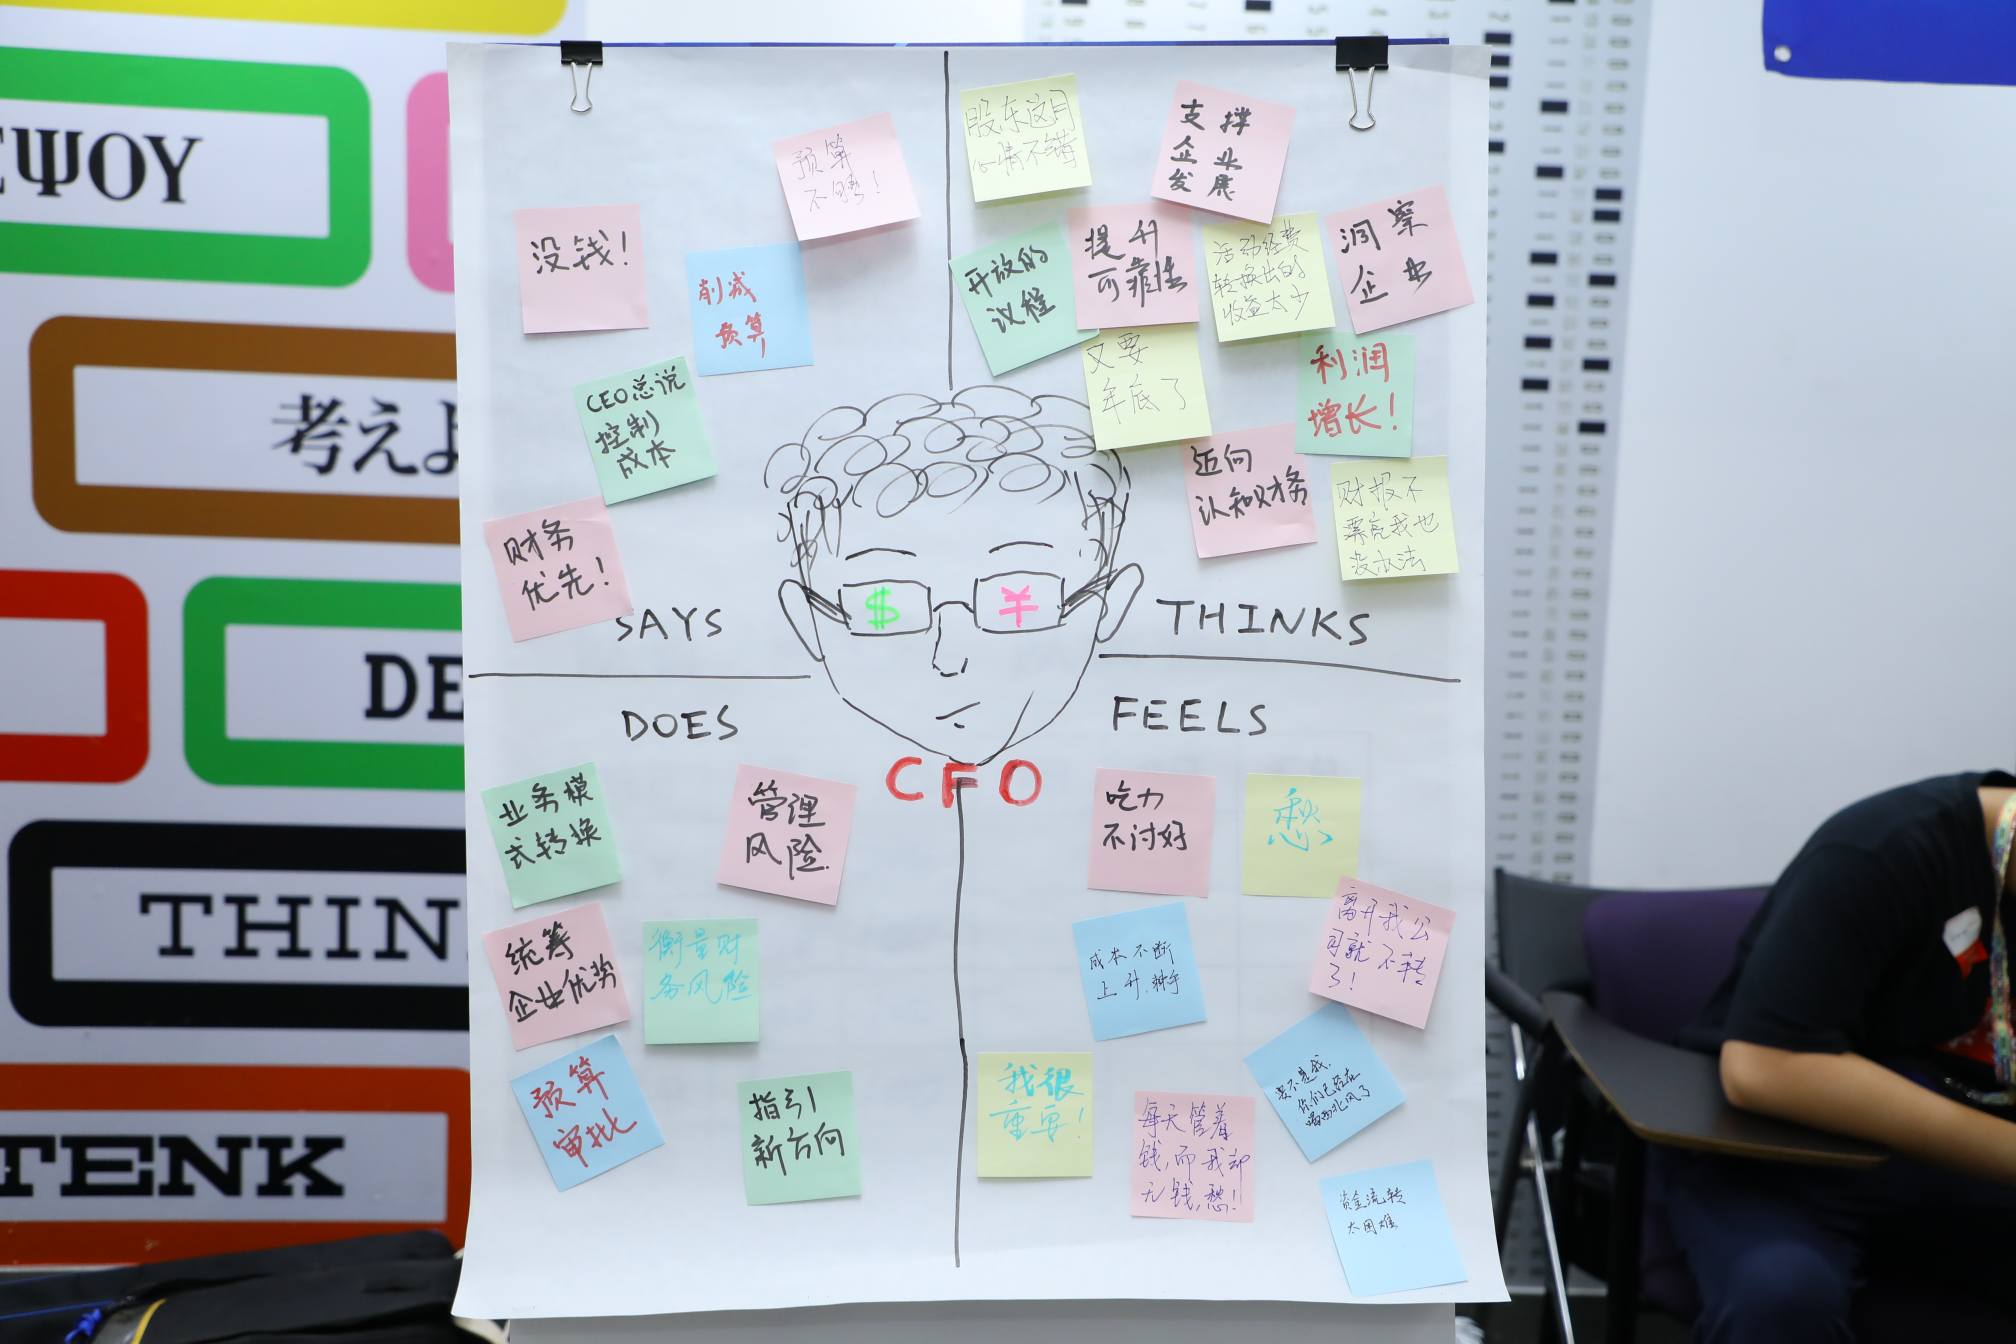 ΕΨΟΥ
考えよ
DE
THIN
TENK
预算
不够！
没钱！
削减
预算
CEO总说
控制
成本
财务
优先！
SAYS
股东这月
心情不错
支撑
企业
发展
开放的
议程
提升
可靠性
活动经费
转换出的
收益太少
洞察
企业
又要
年底了
利润
增长！
迈向
认知财务
财报不
漂亮我也
没办法
THINKS
$
¥
CFO
DOES
业务模
式转换
管理
风险.
统筹
企业优势
衡量财
务风险
预算
审批
指引
新方向
FEELS
吃力
不讨好
愁
成本不断
上升.
离开我公
司就不转
了！
我很
重要！
要不是我.
你们已经在
喝西北风了
每天管着
钱,而我却
无钱,愁!
资金流转
太困难